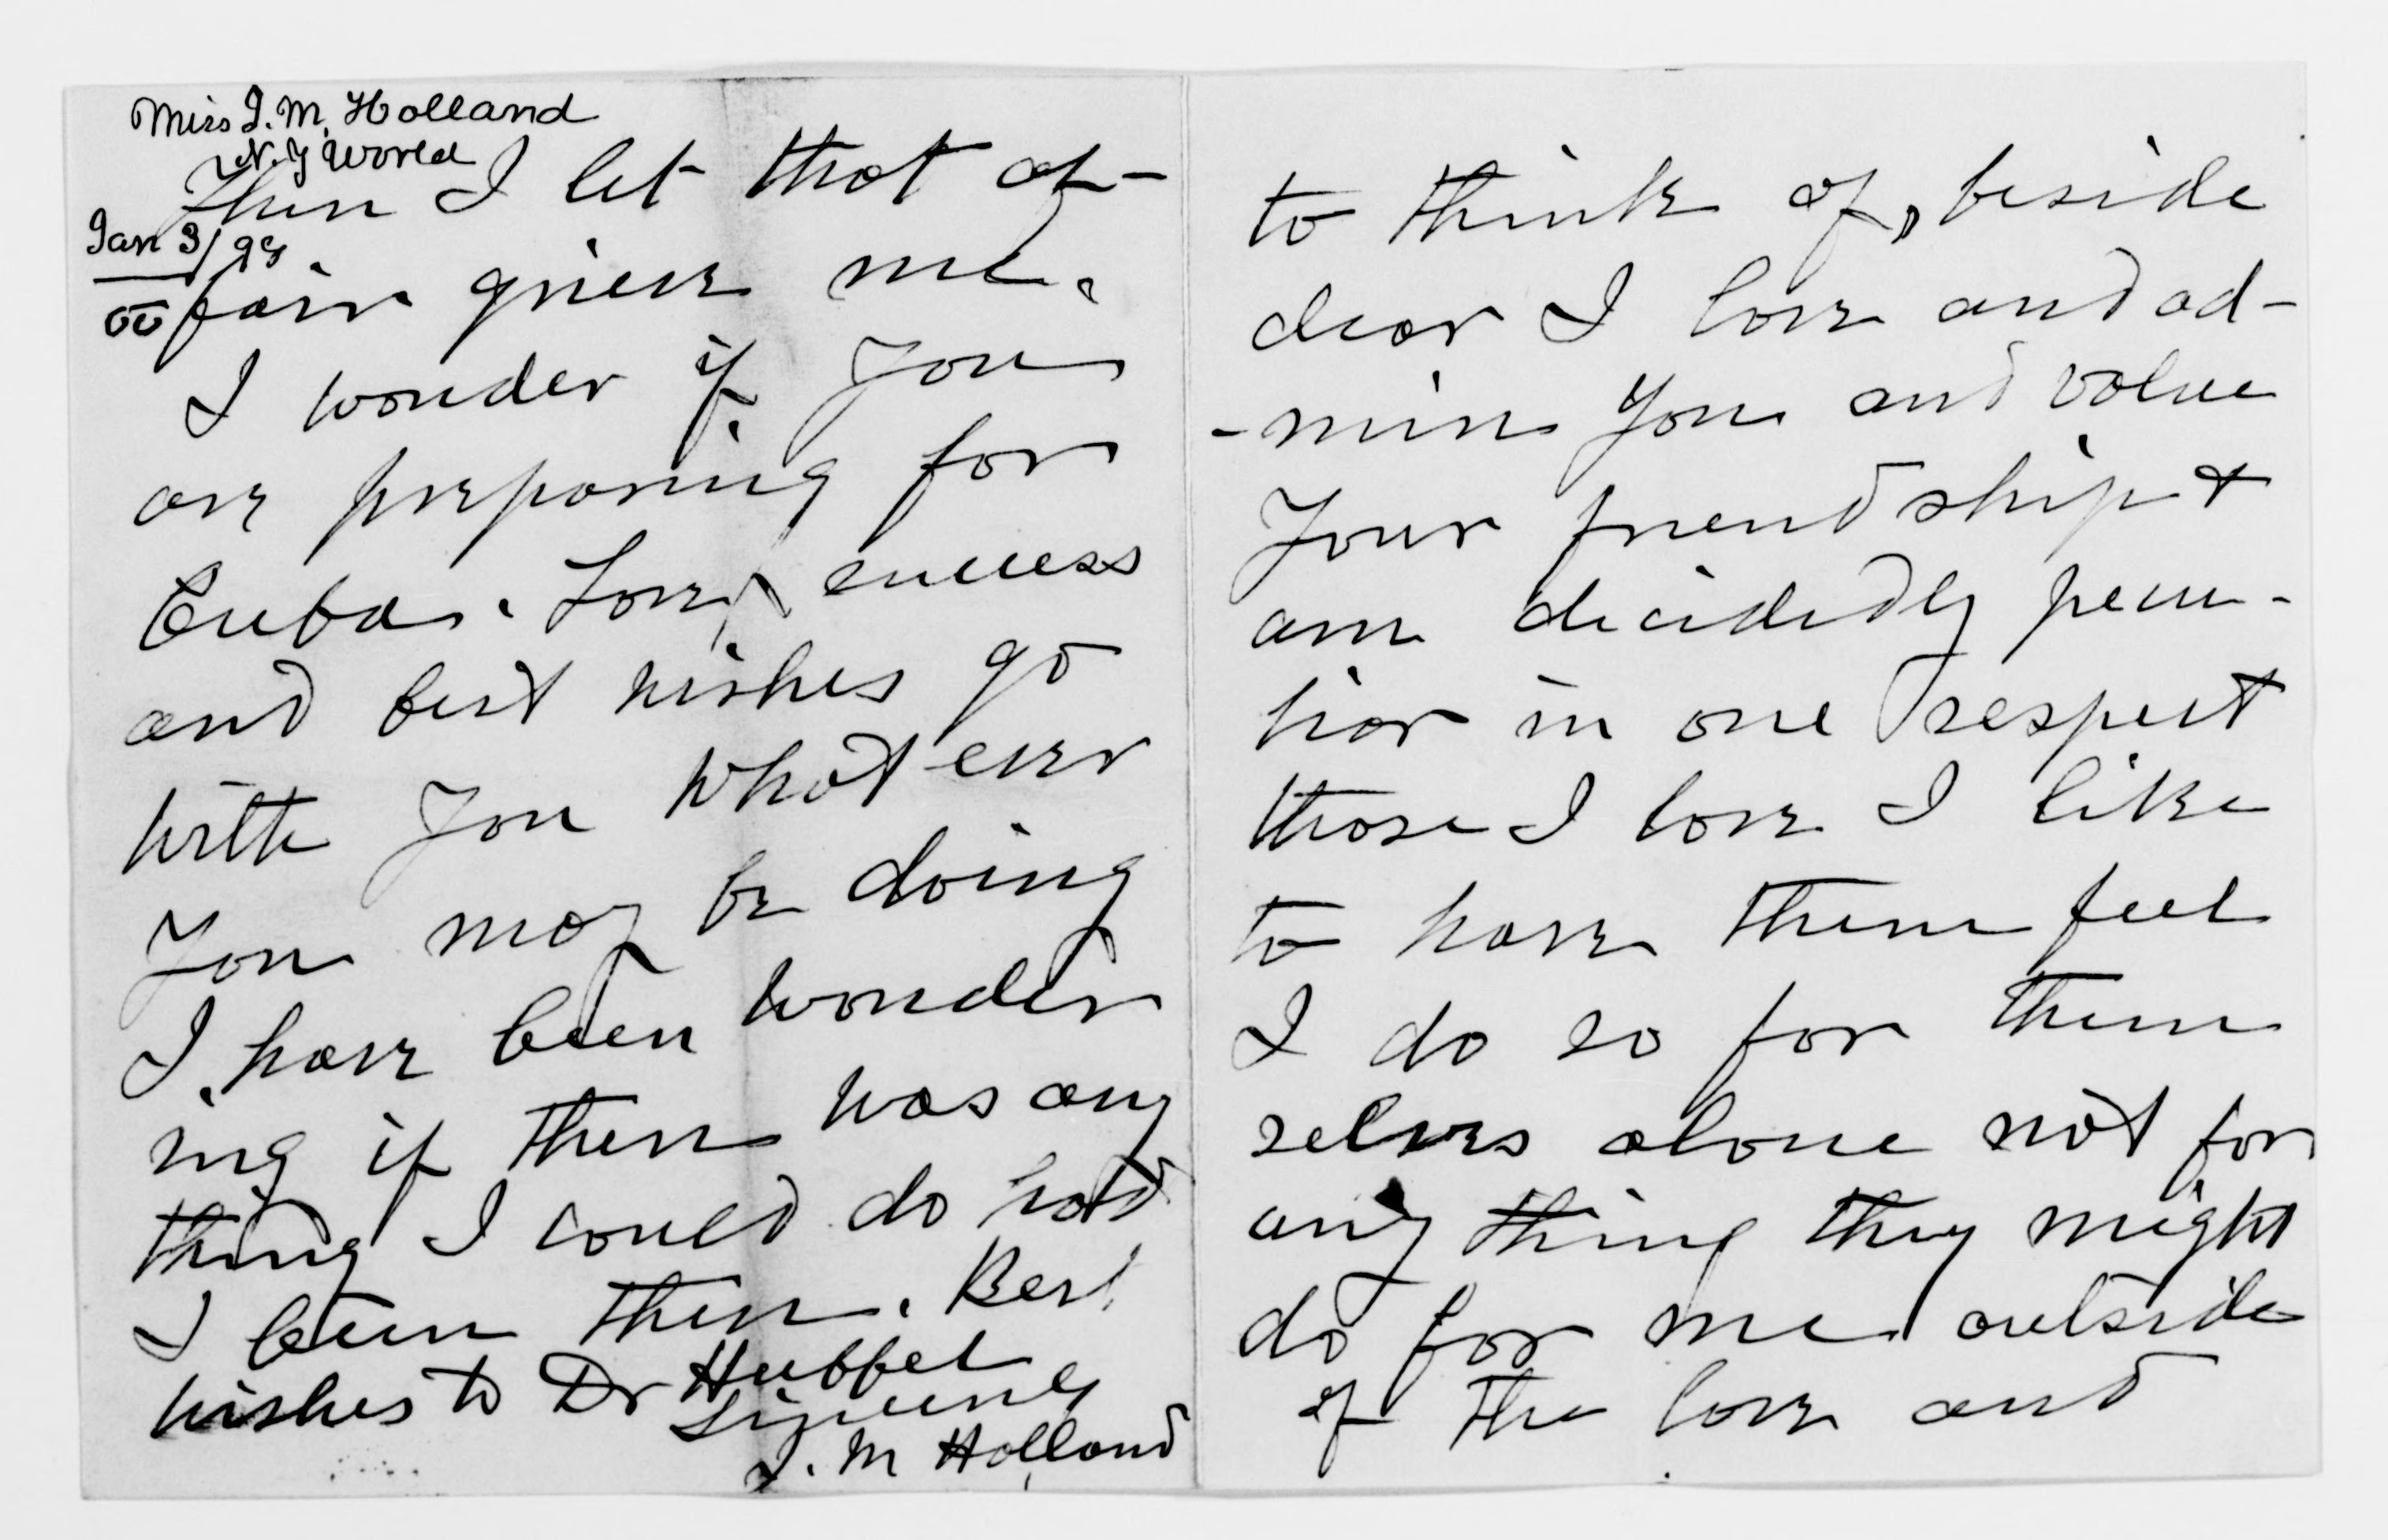 Miss I. M. Holland
N. Y World
Jan 3/98
Then I let that af-
fair grieve me.
I wonder if you
are preparing for
Cuba. Love, success
and best wishes go
with you what ever
you may be doing
I have been wonder
ing if there was any
thing I could do had
I been there. Best
wishes to Dr Hubbel
Sincerely
I. M Holland
to think of, beside
dear I love and ad-
-mire you and value
your friendship &
am decidedly pecu-
liar in one respect
those I love I like
to have them feel
I do so for them
selves alone not for
any thing they might
do for me outside
of the love and